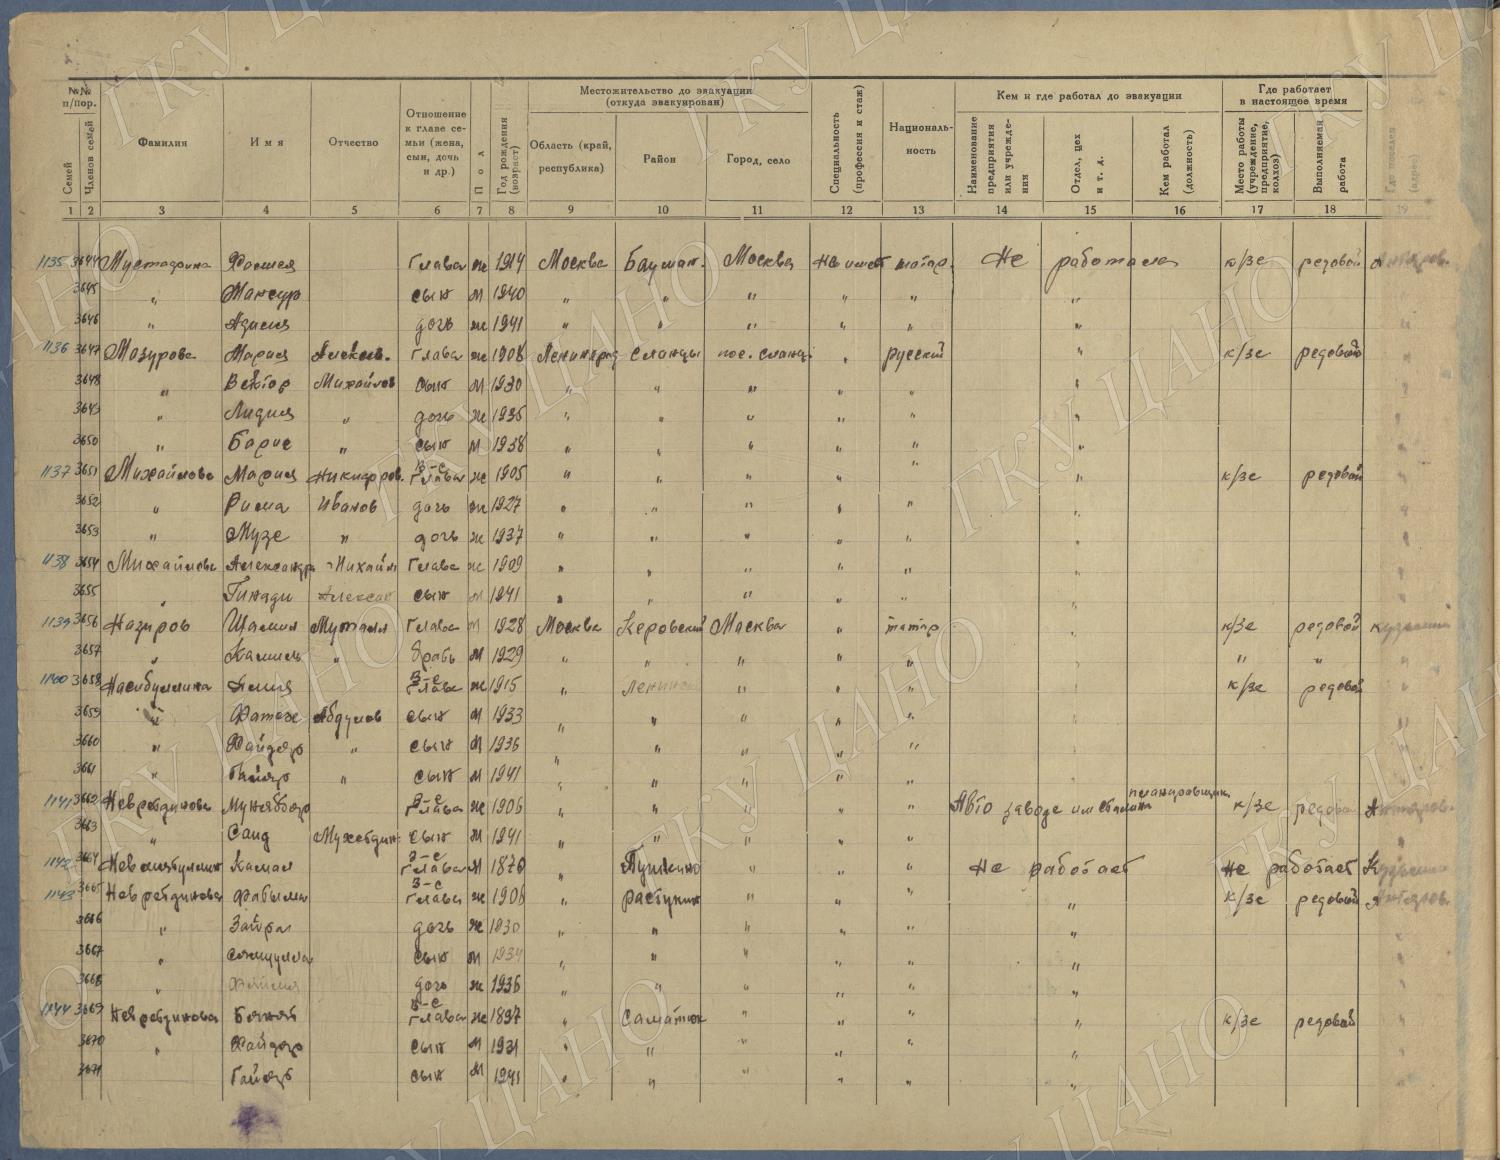 №№ п/пор.
Семей
Членов семей
Фамилия
Имя
Отчество
Отношение к главе семьи (жена, сын, дочь и др.)
Пол
Год рождения (возраст)
Местожительство до эвакуации (откуда эвакуирован)
Область (край, республика)
Район
Город, село
Специальность (профессия и стаж)
Националь- ность
Кем и где работал до эвакуации
Наименование предприятия или учрежде- ния
Отдел, цех и т. д.
Кем работал (должность)
Где работает в настоящее время
Место работы (учреждение, предприятие, колхоз)
Выполняемая работа
Где поселен (адрес)
1 2 3 4 5 6 7 8 9 10 11 12 13 14 15 16 17 18 19
1135 3644 Глава ж 1914 Москва Бауман. Москва татар. Не работала к/зе редовой
3645 " Мансур сын м 1940 " " " " " "
3646 " дочь ж 1941 " " " " " "
1136 3647 Мазурова Мария Алексеев. Глава ж 1908 Ленинград Сланцы пос. сланц. " русский " к/зе редовой
3648 " Виктор Михайлов сын м 1930 " " " " " "
3649 " Лидия " дочь ж 1935 " " " " " "
3650 " Барис " сын м 1938 " " " " " "
1137 3651 Михайлова Мария Никифоров. В-с Глава ж 1905 " " " " " к/зе редовой
3652 " Рима Иванов дочь ж 1927 " " " " " "
3653 " Музе " дочь ж 1937 " " " " " "
1138 3654 Михайлова Александра Михайл Глава ж 1909 " " " " "
3655 " Гинади Алексан сын м 1941 " " " " "
1139 3656 Назиров Глава м 1928 Москва Керовский Москва " татар " к/зе редовой
3657 " Камиль " брать м 1929 " " " " " " "
1140 3658 Насибуллина В-с Главе ж 1915 " Ленинск " " " к/зе редовой
3659 " Абдулов сын м 1933 " " " " "
3660 " Хайдяр " сын м 1936 " " " " "
3661 " Гайяр " сын м 1941 " " " " "
1141 3662 Невретдинова В-с Глава ж 1906 " " " " " Авто заводе им Сталина к/зе редовой
3663 " Саид сын м 1941 " " " " "
1142 3664 Камал В-с Глава м 1870 Пушкино " " Не работает Не работает
1143 3665 Невретдинова В-с Глава ж 1906 " " " " " к/зе редовой
3666 " дочь ж 1930 " " " " " "
3667 " сын м 1934 " " " " " "
3668 " дочь ж 1936 " " " " " "
1144 3669 Невретдинова В-с Глава ж 1897 " " " " " к/зе редовой
3670 " Хайдяр сын м 1931 " " " " " "
3671 Гайяр сын м 1941 " " " " " "
ГКУ ЦАНО